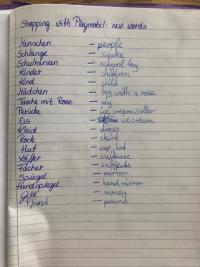 Shopping with Playmobil: new words
Menschen – people
Schlange – snake
Schulranzen – school bag
Kinder – children
Kind – child
Mädchen – bag with a rose
Tasche mit Rose – wig
Perücke – ice cream seller
Eis – ice cream
Kleid – dress
Rock – skirt
Hut – cap, hat
Koffer – suitcase
Fächer – subjects
Spiegel – mirror
Handspiegel – hand mirror
– money
Pfund – pound